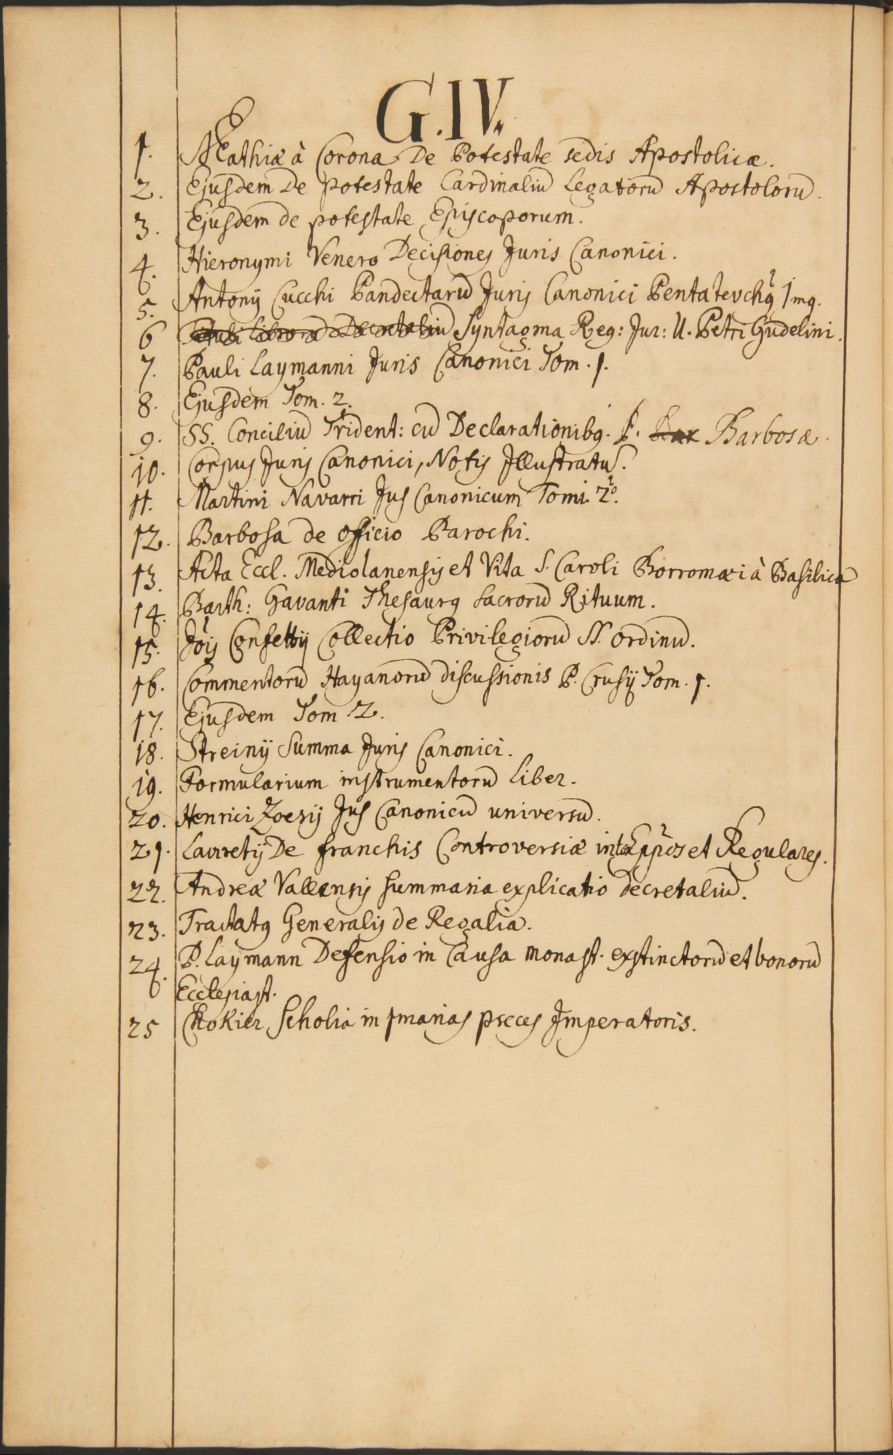 G.IV.
1. Mathiæ à Corona De Potestate sedis Apostolicæ.
2. Ejusdem De potestate Cardinaliū Legatorū Apostolorū.
3. Ejusdem de potestate Episcoporum.
4. Hieronymi Venero Decisiones Juris Canonici.
5. Antonij Cucchi Pandectarū Juris Canonici Pentatevchq 1mq.
6 Syntagma Reg: Jur: U. Petri Gudelini.
7. Pauli Laymanni Juris Canonici Tom. 1.
8. Ejusdem Tom. 2.
9. SS. Conciliū Trident: cū Declarationibq. P. Barbosæ.
10. Corpus Juris Canonici, Notis Jllustratus.
11. Martini Navarri Jus Canonicum Tomi 2o.
12. Barbosa de officio Parochi.
13. Acta Eccl. Mediolanensis et Vita S. Caroli Borromæi à Basilica
14. Barth: Gavanti Thesaurq sacrorū Rituum.
15. Jõis Confettij Collectio Privilegiorū SS. ordinū.
16. Commentorū Hayanorū discussionis P. Crusij Tom. 1.
17. Ejusdem Tom 2.
18. Streinij Summa Juris Canonici.
19. Formularium instrumentorū Liber.
20. Henrici Zoesij Jus Canonicū universū.
21. Lavretij De franchis Controversiæ inter Eppcos et Regulares.
22. Andreæ Vallensis summaria explicatio decretaliū.
23. Tractatq Generalis de Regalia.
24. P. Laymann Defensio in Causa monast. exstinctorū et bonorū
Ecclesiast.
25 Chokier Scholia in 1marias preces Jmperatoris.